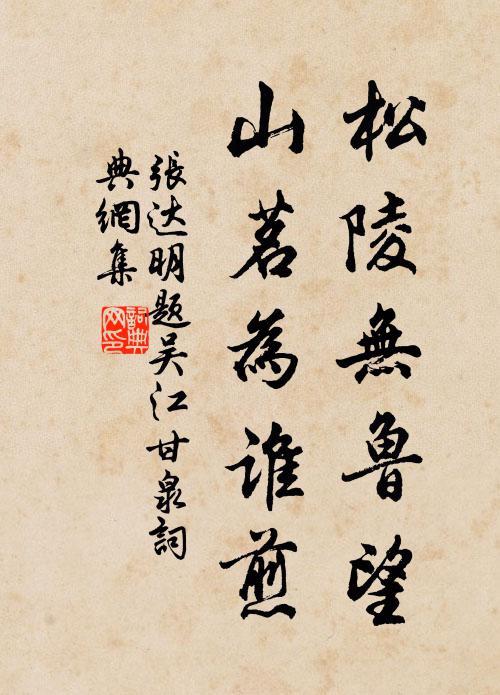 松陵無魯望
山茗為谁煎
張达明题吴江甘泉詞
典網集
詞典
网印